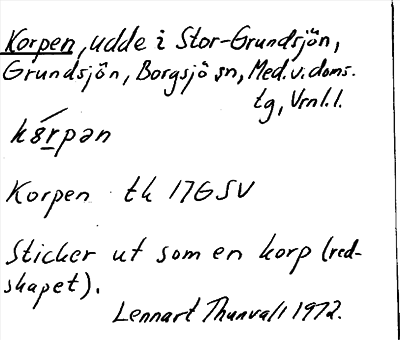 Korpen, udde i Stor-Grundsjön,
Grundsjön, Borgsjö sn, Med.v.doms.
tg, Vrnl.l.
kårpən
Korpen tk 17G SV
Sticker ut som en korp (red-
skapet).
Lennart Thunvall 1972.